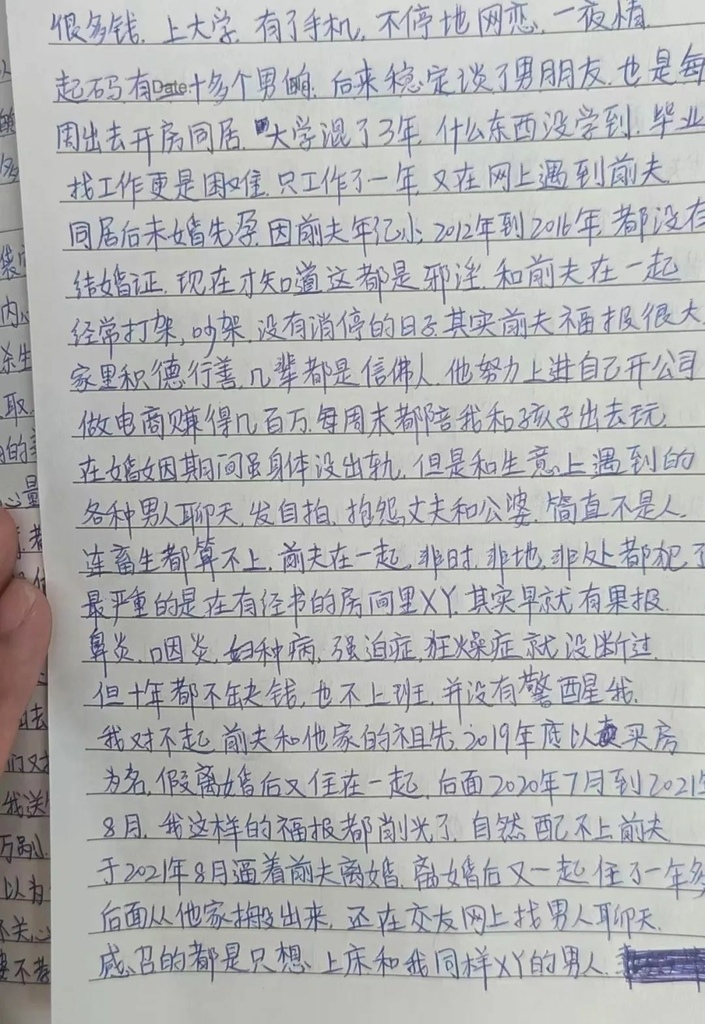 很多钱.上大学.有了手机,不停地网恋.一夜情.
起码有Date十多个男的.后来稳定谈了男朋友.也是每
周出去开房同居.大学混了3年.什么东西没学到.毕业
找工作更是困难.只工作了一年.又在网上遇到前夫.
同居后未婚先孕.因前夫年纪小.2012年到2016年.都没有
结婚证.现在才知道这都是邪淫.和前夫在一起
经常打架,吵架.没有消停的日子.其实前夫福报很大.
家里积德行善.几辈都是信佛人.他努力上进自己开公司
做电商赚得几百万.每周末都陪我和孩子出去玩.
在婚姻期间虽身体没出轨.但是和生意上遇到的
各种男人聊天.发自拍.抱怨丈夫和公婆.简直不是人.
连畜生都算不上.前夫在一起.非时.非地.非处都犯了
最严重的是在有经书的房间里XY.其实早就有果报.
鼻炎.咽炎.妇种病.强迫症.狂燥症就没断过.
但十年都不缺钱.也不上班.并没有警醒我.
我对不起前夫和他家的祖先.2019年底以买房
为名.假离婚后又住在一起.后面2020年7月到2021年
8月.我这样的福报都削光了.自然配不上前夫.
于2021年8月逼着前夫离婚.离婚后又一起住了一年多
后面从他家搬出来.还在交友网上找男人聊天.
感召的都是只想上床和我同样XY的男人.